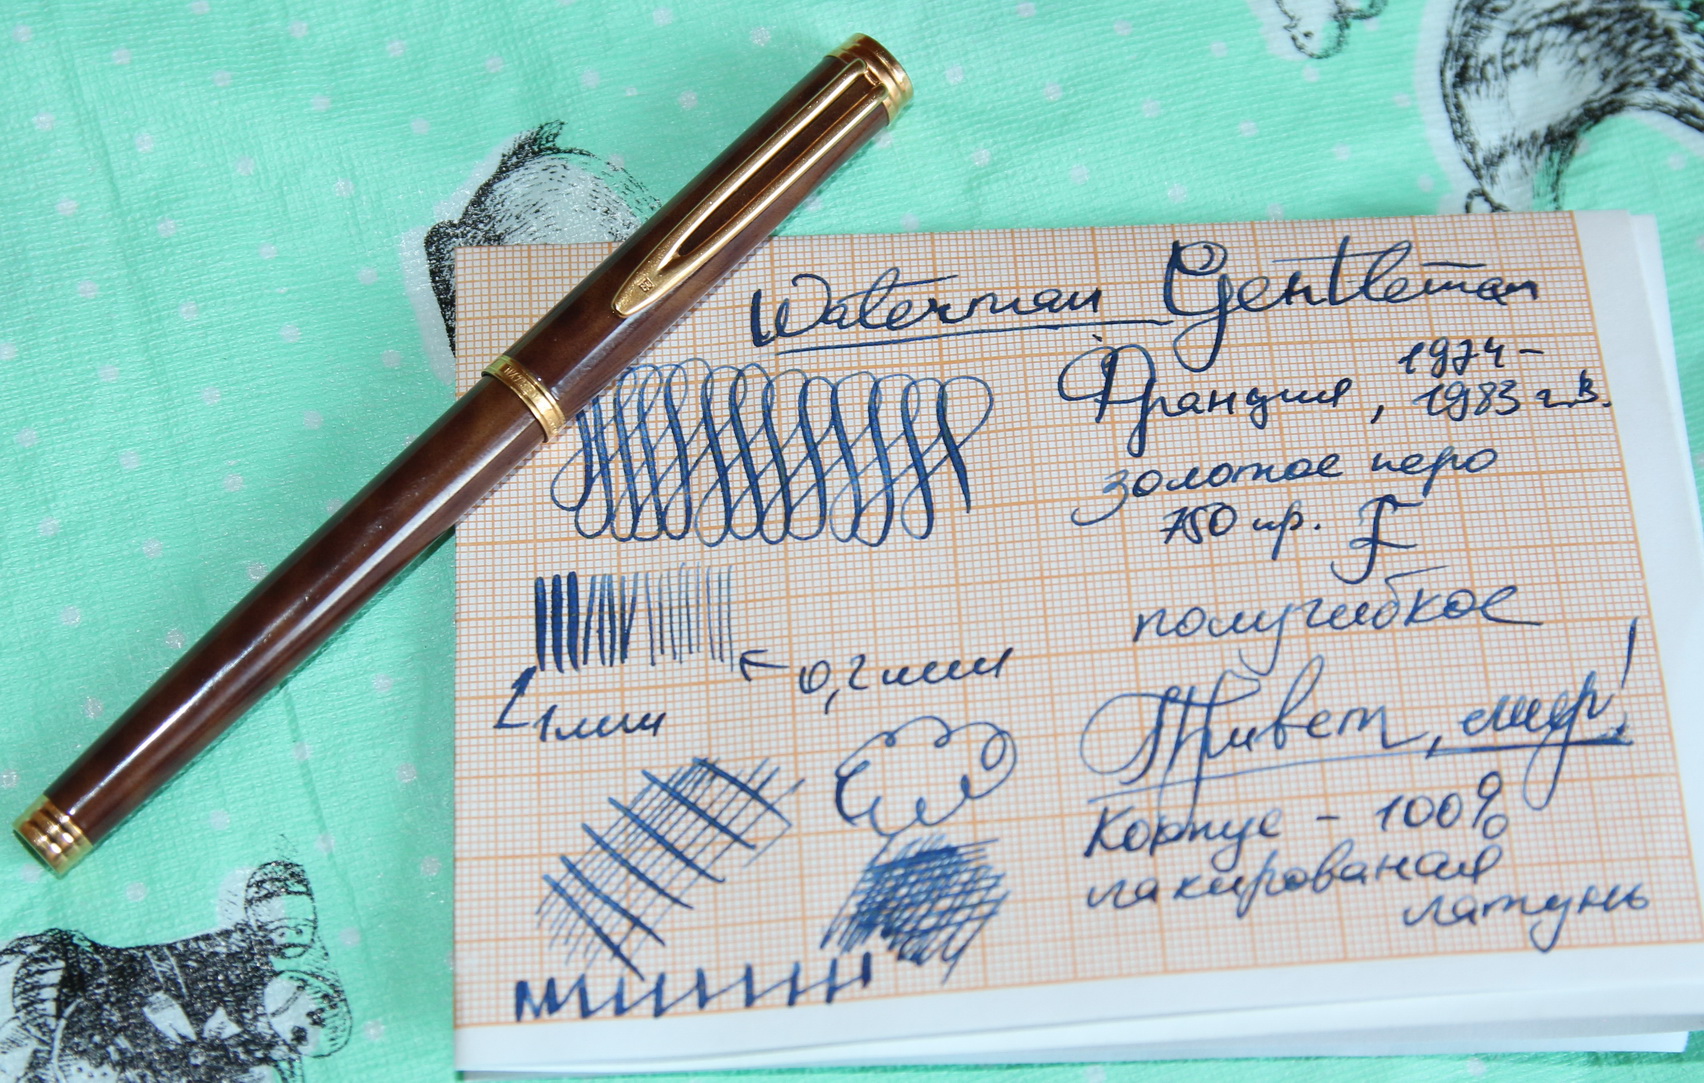 Waterman Gentleman
Франция, 1974-
1983 г.в.
золотое перо
750 пр. F
полугибкое
0,2 мм
1 мм
Привет, мир!
Корпус - 100%
лакированая
латунь